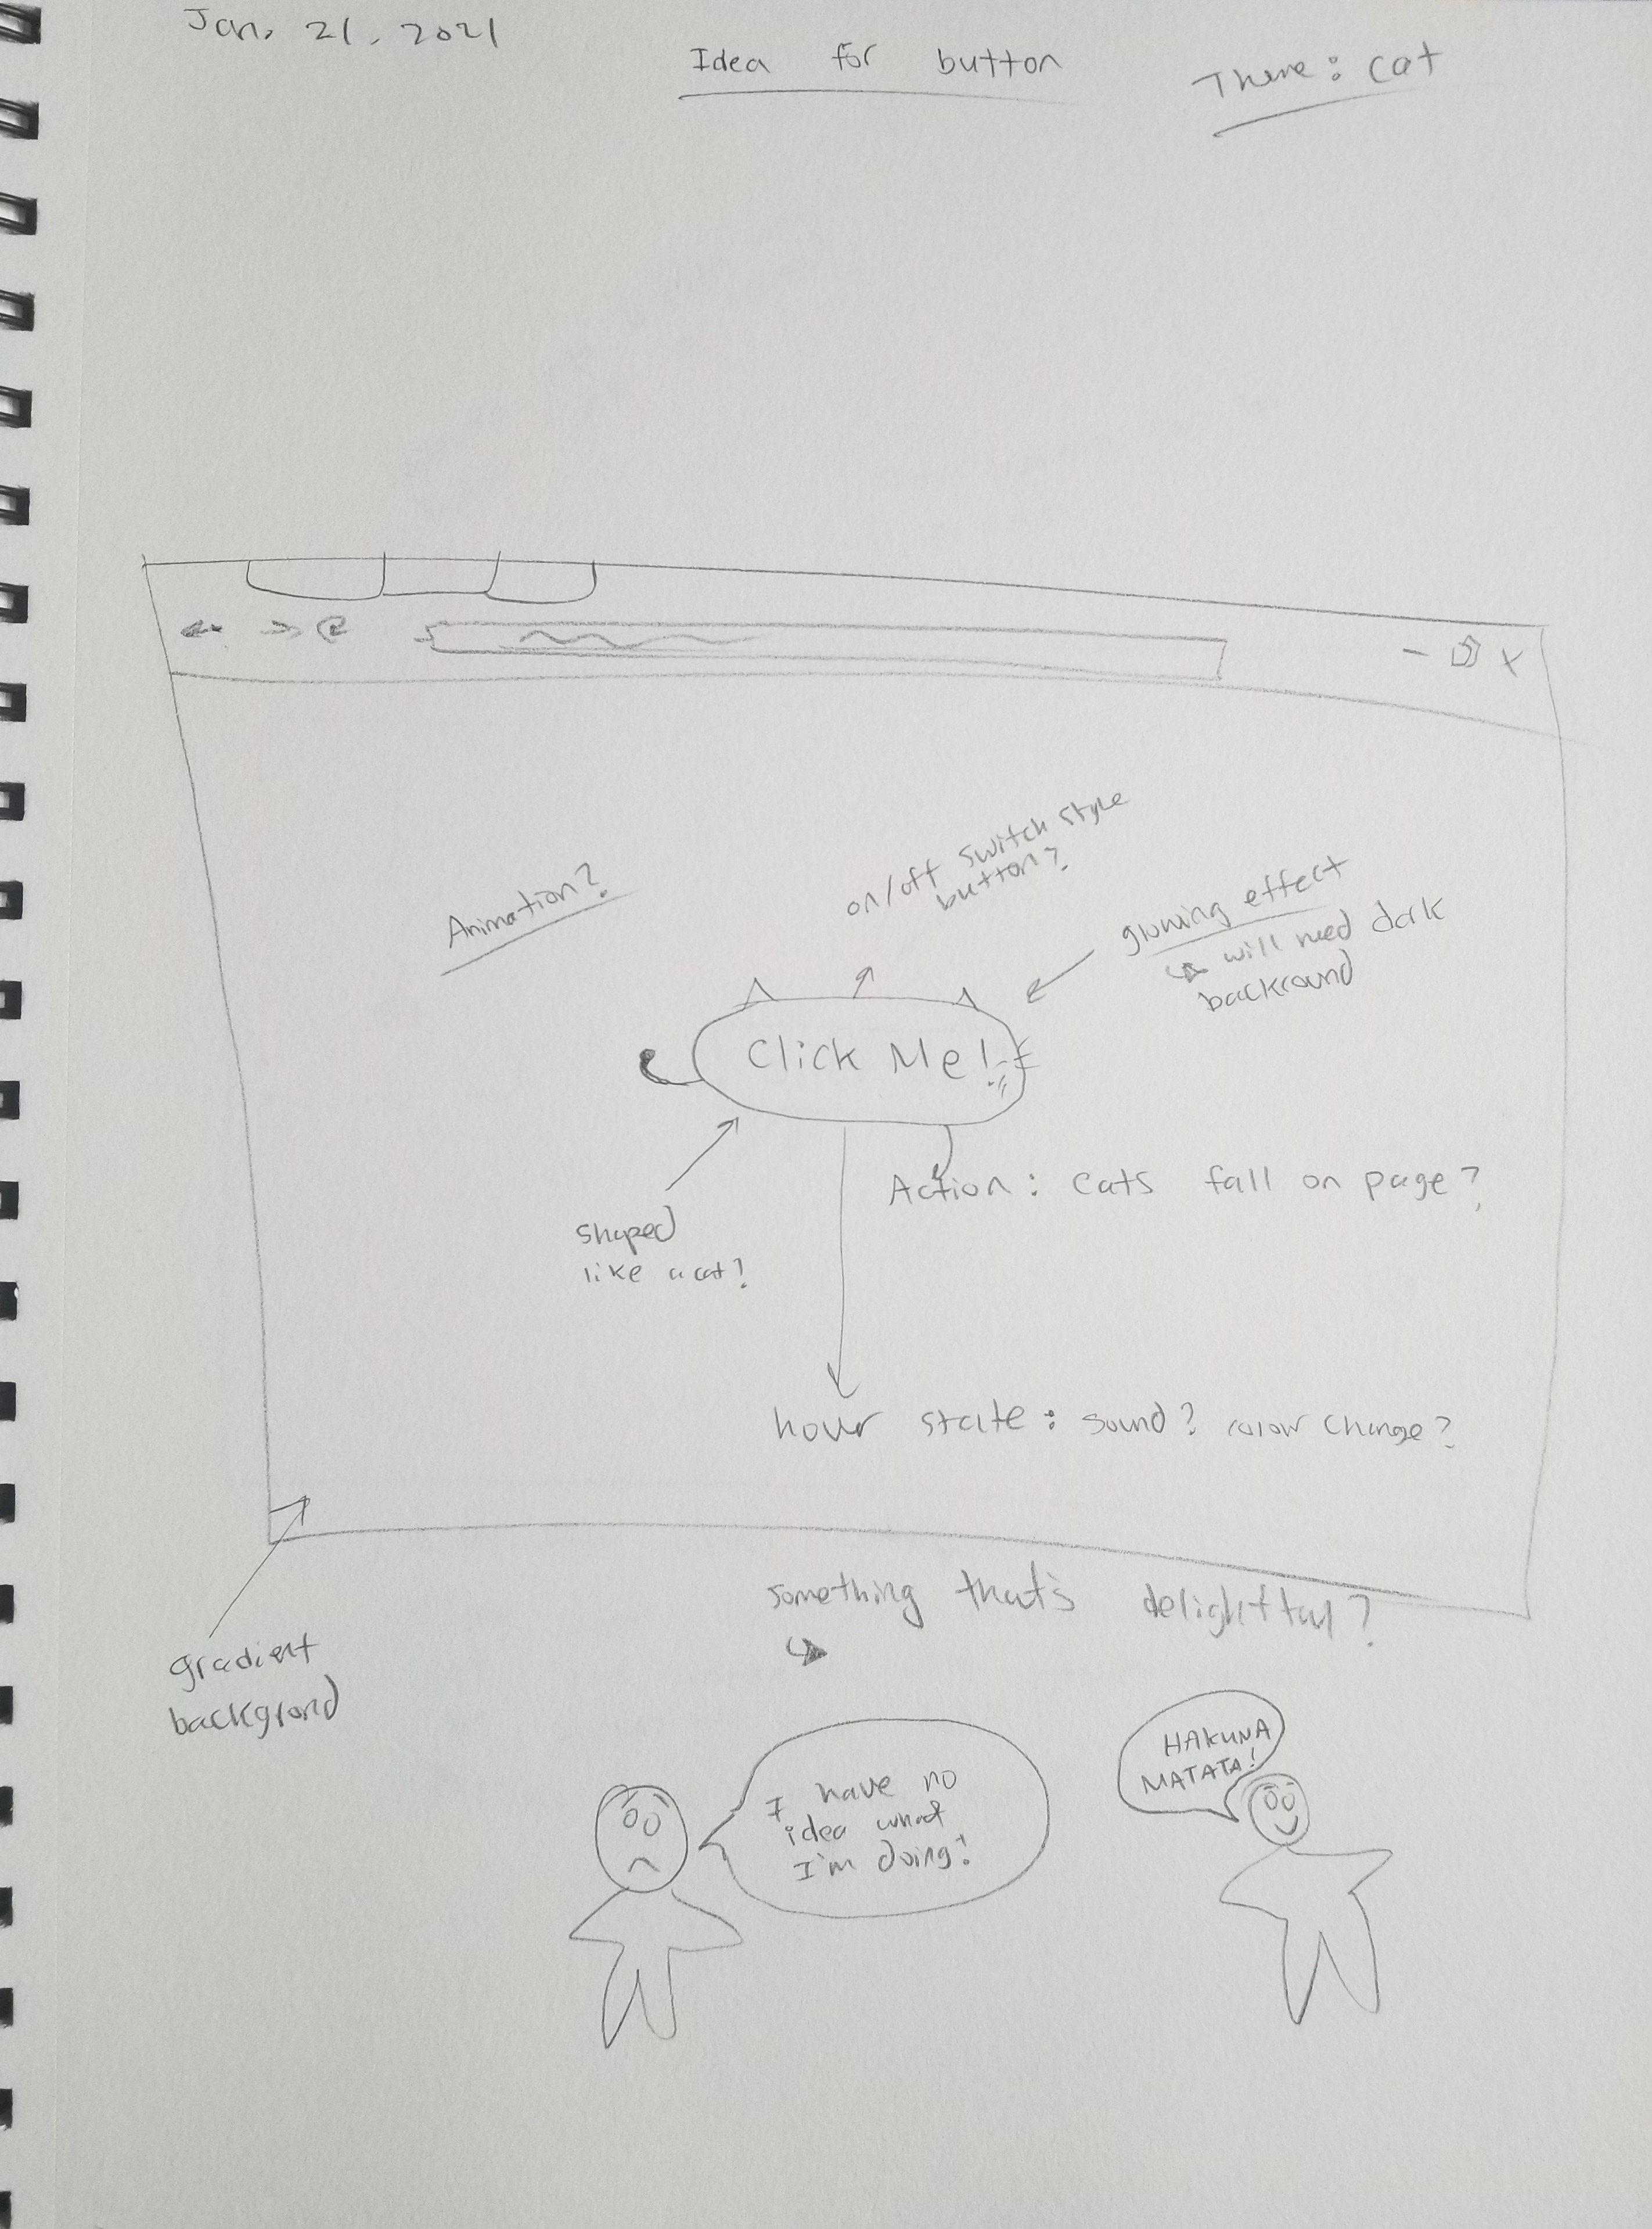 Jan. 21. 2021
Idea for button
Theme: cat
Animation?
on/off switch style
button?
glowing effect
will need dark
backround
Click Me!
shaped
like a cat?
Action: cats fall on page?
hover state: sound? color change?
something that's delightful?
gradient
backgrond
I have no
idea what
I'm doing!
HAKUNA
MATATA!